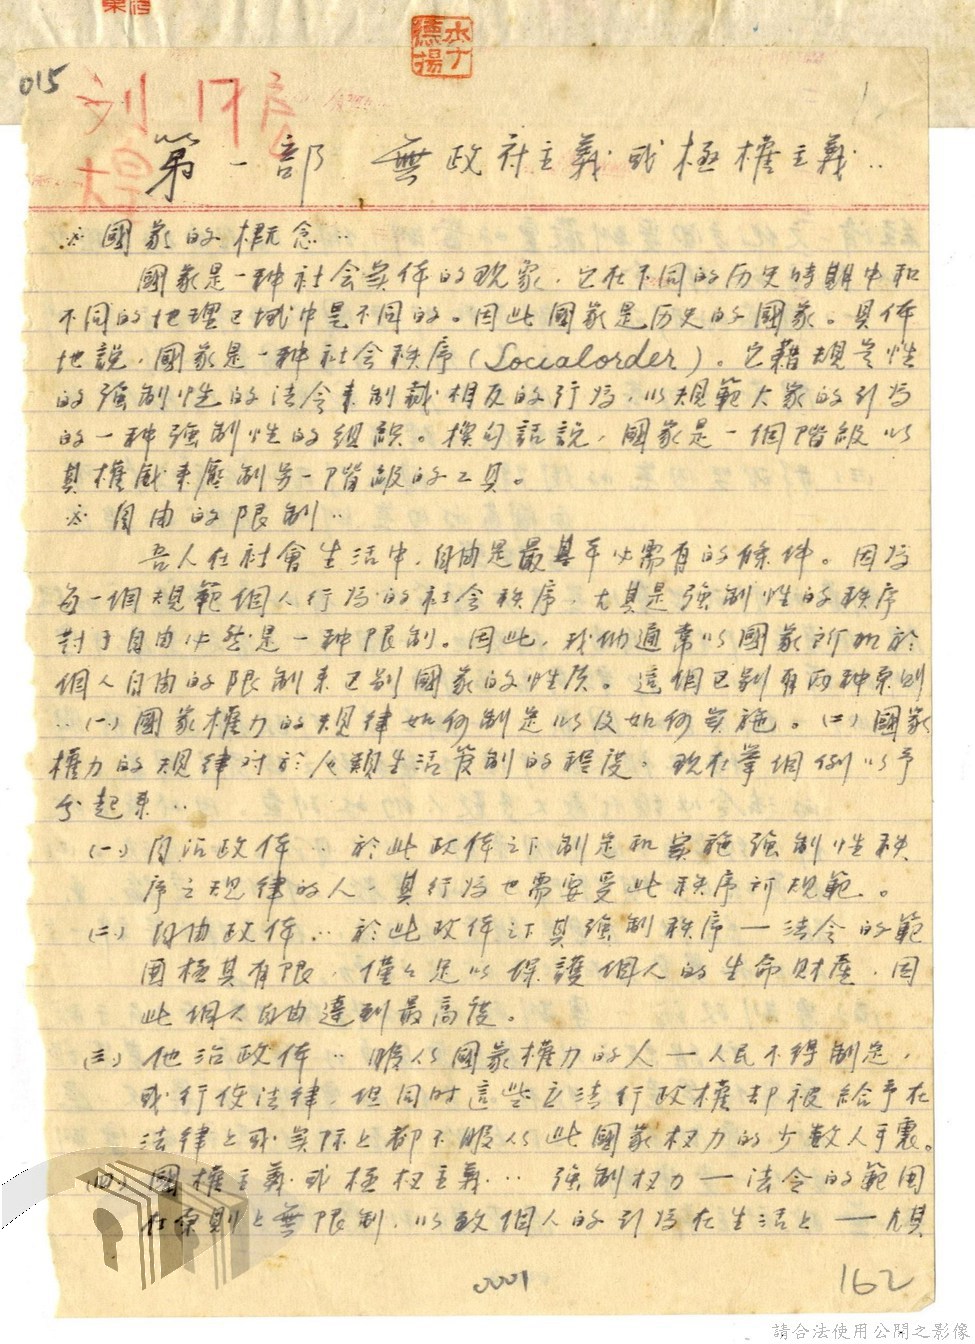 015
第一部 無政府主義或極權主義..
※國家的概念..
國家是一种社会实体的现象，它在不同的历史時期中和
不同的地理区域中是不同的。因此國家是历史的國家。具体
地說，國家是一种社会秩序(Socialorder)。它藉規定性
的強制性的法令来制裁相反的行為，以規範大家的行為
的一种強制性的組織。換句話說，國家是一個階級以
其權威来壓制另一階級的工具。
※自由的限制..
吾人在社會生活中，自由是最基本必需有的條件。因為
每一個規範個人行為的社会秩序，尤其是強制性的秩序
對于自由必然是一种限制。因此，我们通常以國家所加於
個人自由的限制来区别國家的性质。這個区别有两种原则
..(一)國家權力的規律如何制定以及如何实施。(二)國家
權力的規律对於人類生活管制的程度。现在举個例以予
分起来..
(一)自治政体..於此政体之下制定和实施強制性秩
序之規律的人，其行為也需要受此秩序所規範。
(二)自由政体..於此政体之下其強制秩序—法令的範
囲極其有限，僅々是以保護個人的生命財產，因
此個人自由達到最高度。
(三)他治政体..服从國家權力的人—人民不得制定，
或行使法律，但同时這些立法行政權却被給予在
法律上或实际上都不服从此國家权力的少数人手裏。
(四)國權主義或極权主義..強制权力—法令的範囲
在原則上無限制，以致個人的行為在生活上——尤其
0001
162
請合法使用公開之影像